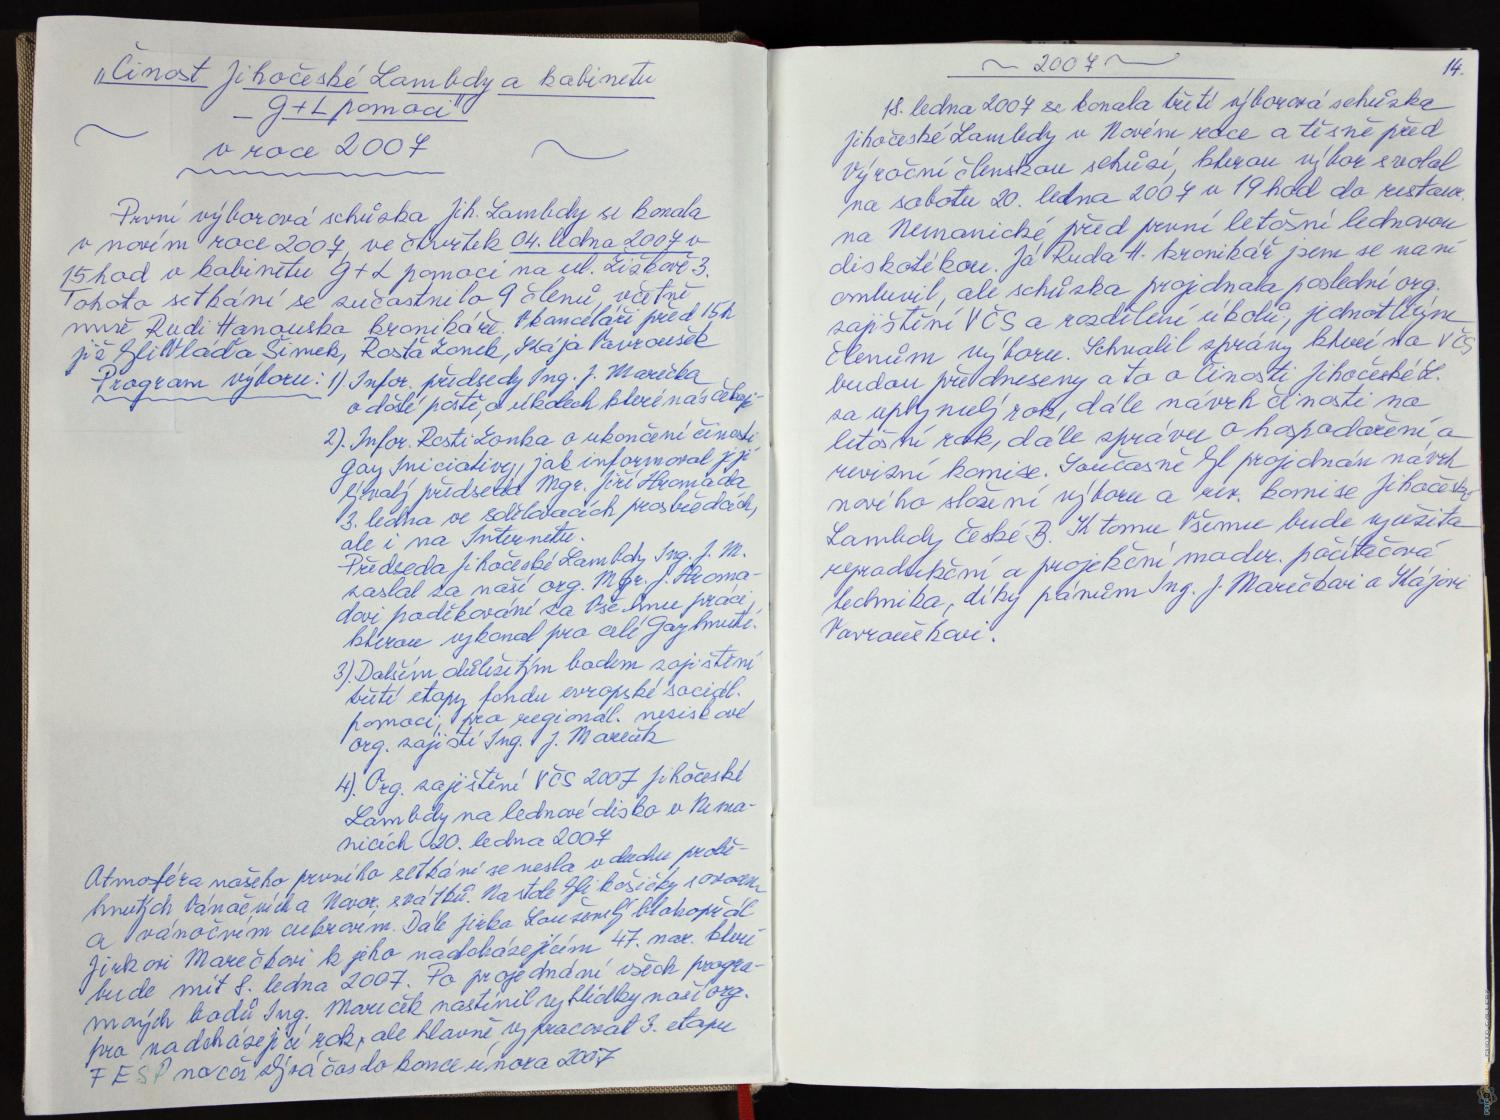 „Činost Jihočeské Lambdy a kabinetu
– G+L pomoci"
v roce 2007
První výborová schůzka Jih. Lambdy se konala
v novém roce 2007, ve čtvrtek 04. ledna 2007 v
15 hod v kabinetu G+L pomoci na ul. Žižkově 3.
Tohoto setkání se zúčastnilo 9 členů, včetně
mně Rudi Hanouska kronikáře. V kanceláři před 15h
již byli Vláďa Šimek, Rosťa Zonek, Kája Vavroušek
Program výboru: 1) Infor. předsedy Ing. J. Marečka
o došlé poště, o úkolech které nás čekají
2). Infor. Rosti Zonka o ukončení činosti
gay Iniciativy, jak informoval její
bývalý předseda Mgr. Jiří Hromada
3. ledna ve sdělovacích prostředcích,
ale i na Internetu.
Předseda Jihočeské Lambdy Ing. J. M.
zaslal za naší org. Mgr. J. Hroma-
dovi poděkování za Všechnu práci,
kterou vykonal pro celé Gay hnutí.
3). Dalším důležitým bodem zajištění
třetí etapy fondu evropské sociál.
pomoci, pro regionál. neziskové
org. zajistí Ing. J. Mareček
4). Org. zajištění VČS 2007 Jihočeské
Lambdy na lednové disko v Nema-
nicích 20. ledna 2007
Atmosféra našeho prvního setkání se nesla v duchu probě-
hnutých Vánočních a Novor. svátků. Na stole byli košíčky s ovocem
a vánočním cukrovím. Dále Jirka blahopřál
Jirkovi Marečkovi k jeho nadcházejícím 47. nar. které
bude mít 8. ledna 2007. Po projednání všech progra-
mových bodů Ing. Mareček nastínil vyhlídky naší org.
pro nadcházející rok, ale hlavně vypracovat 3. etapu
FESP na což zbývá čas do konce února 2007
2007
14.
18. ledna 2007 se konala třetí výborová schůzka
Jihočeské Lambdy v Novém roce a těsně před
Výroční členskou schůzí, kterou výbor svolal
na sobotu 20. ledna 2007 v 19 hod do restaur.
na Nemanické před první letošní lednovou
diskotékou. Já Ruda H. kronikář jsem se na ní
omluvil, ale schůzka projednala poslední org.
zajištění VČS a rozdělení úkolů, jednotlivým
členům výboru. Schválil zprávy které na VČS
budou předneseny a to o Činosti Jihočeské L.
za uplynulý rok, dále návrh činosti na
letošní rok, dále zprávu o hospodaření, a
revizní komise. Současně byl projednán návrh
nového složení výboru a rev. komise Jihočeské
Lambdy České B. K tomu Všemu bude využita
reprodukční a projekční moder. počítačová
technika, díky pánům Ing. J. Marečkovi a Kájovi
Vavrouškovi.